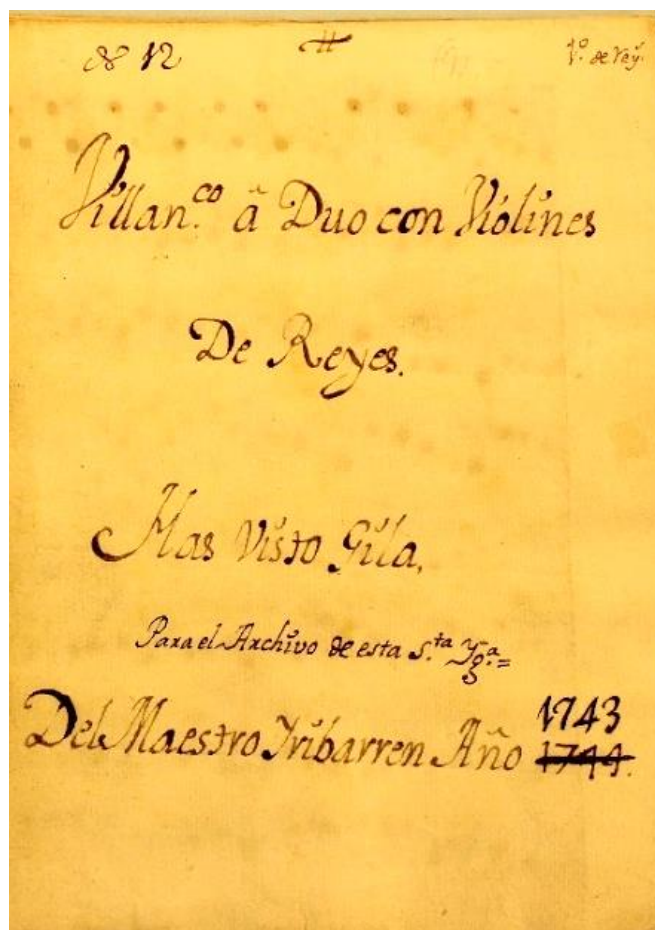 12 1.º de Rey.s
Villan.co â Duo con Violines
De Reyes.
Has Visto Gila,
Para el Archivo de esta S.ta Yg.a =
1743
Del Maestro Yribarren Año 1744.